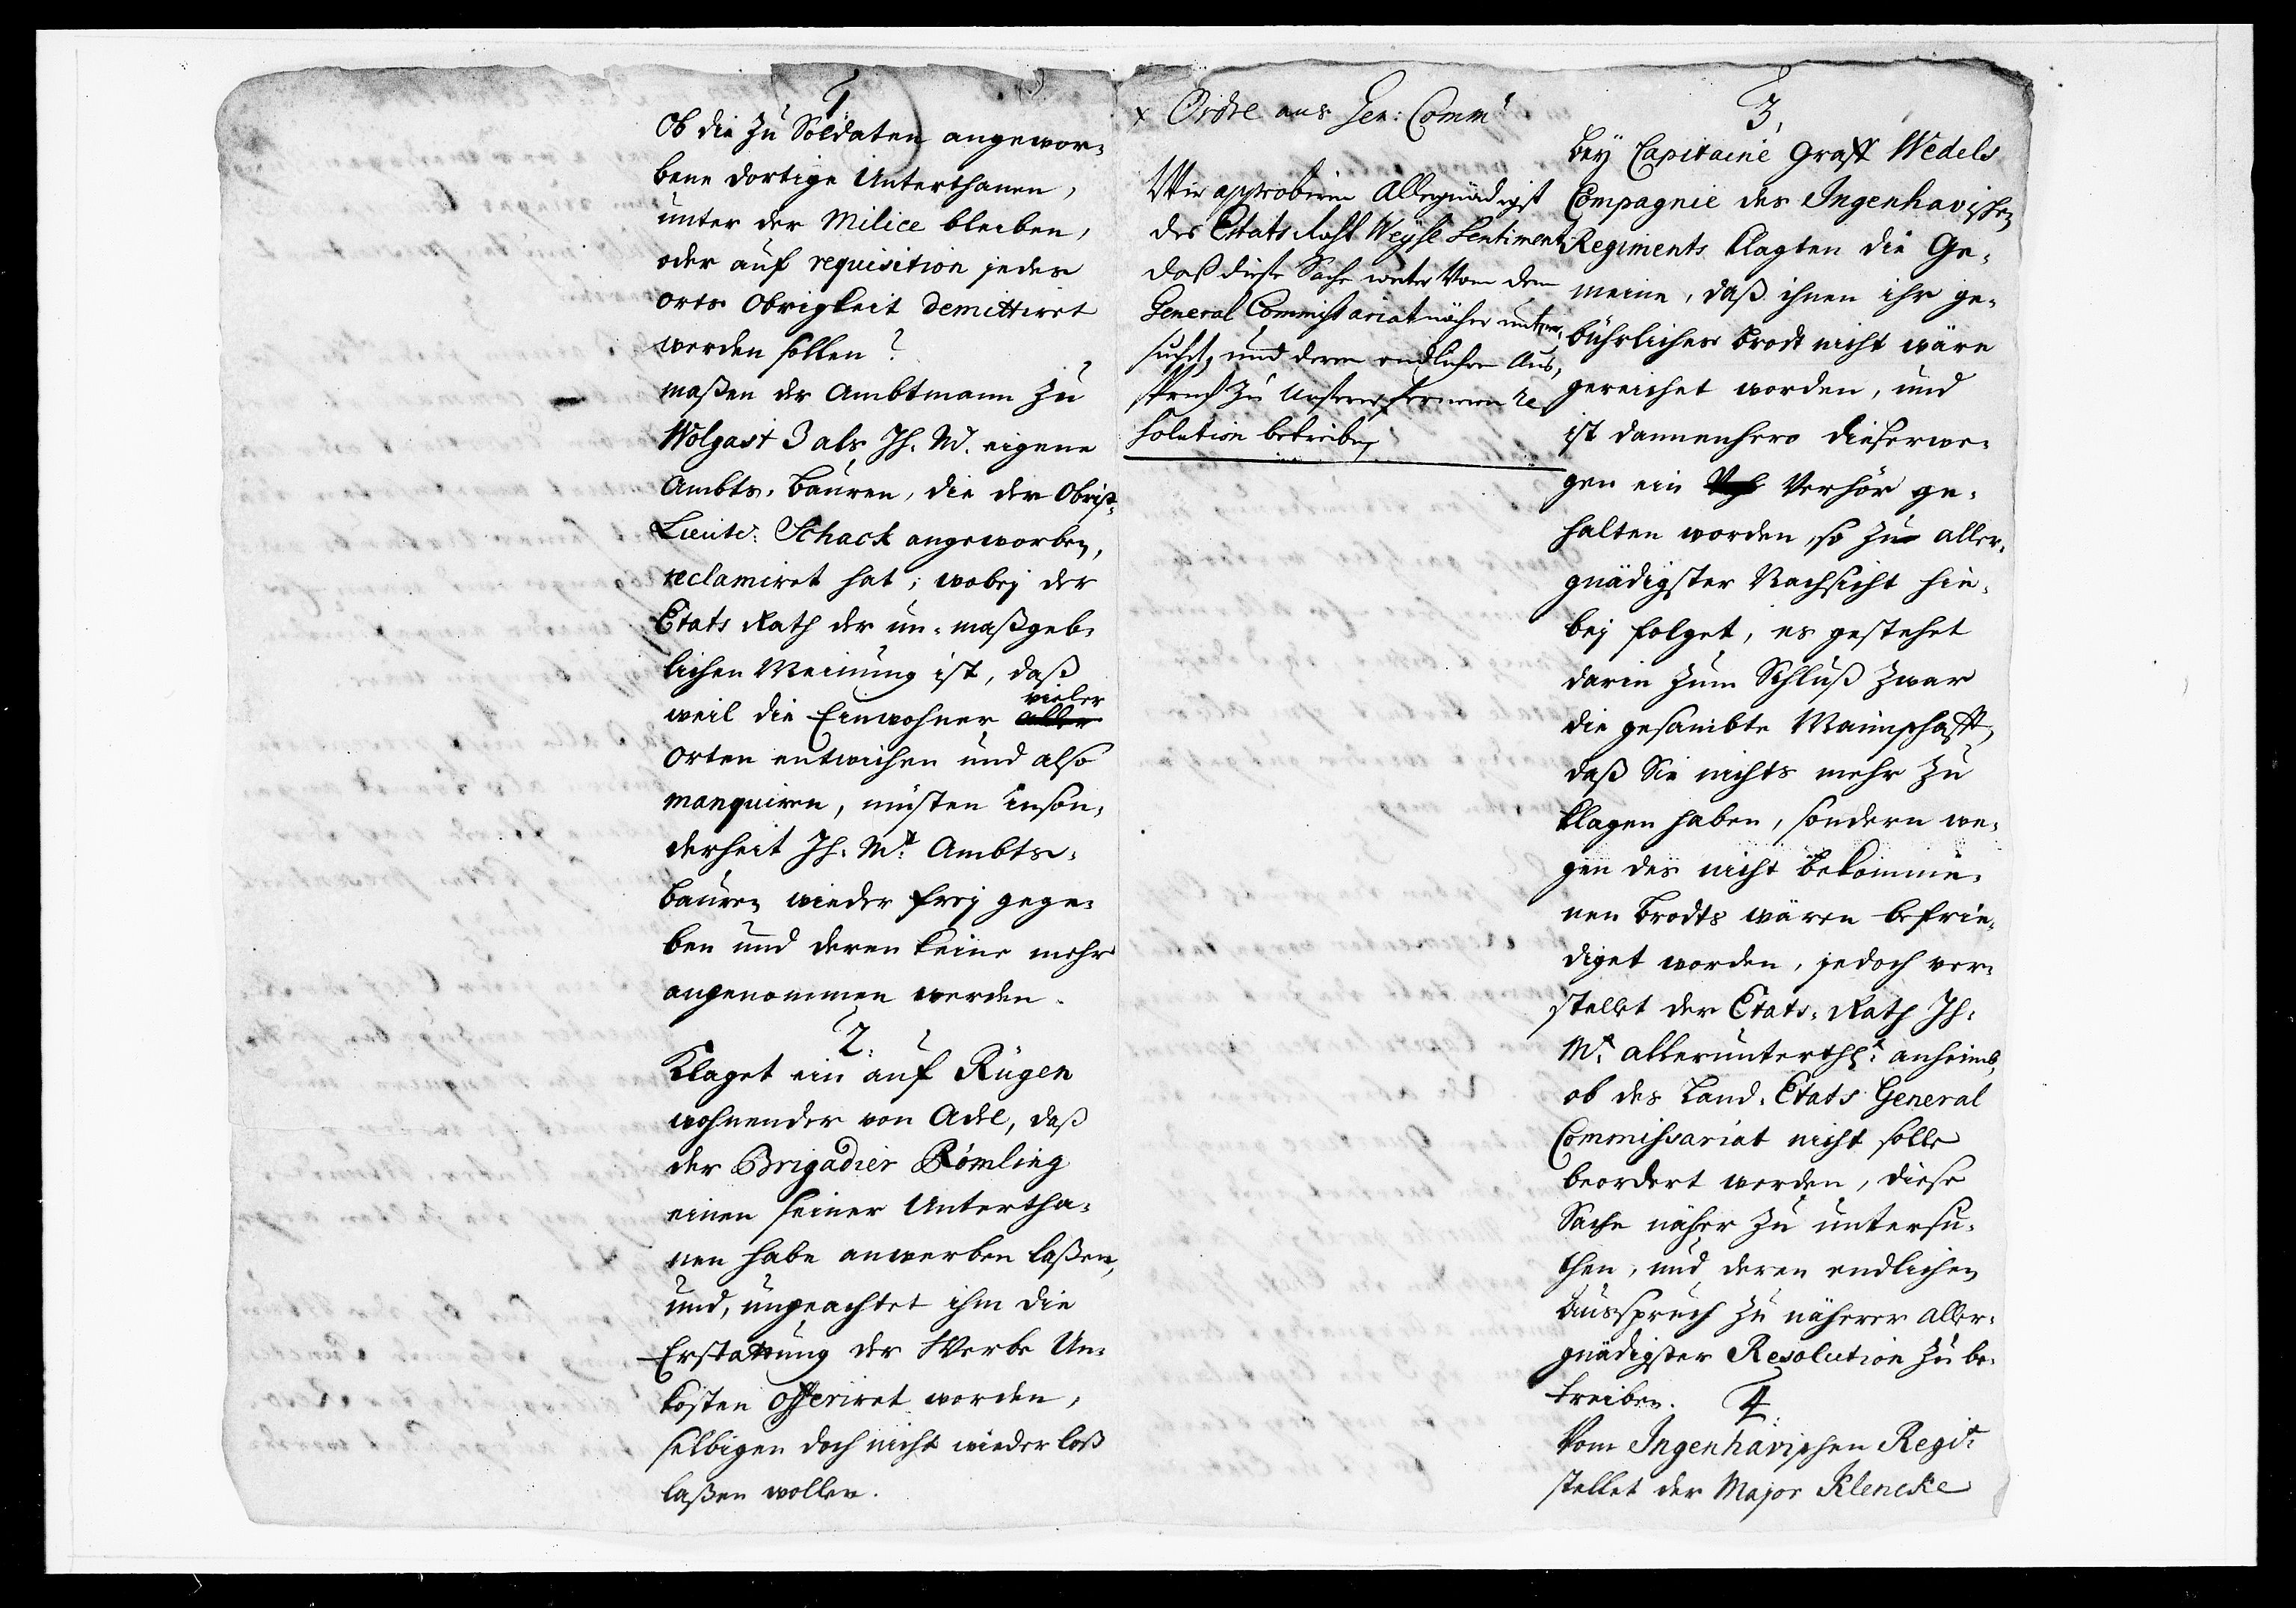 1.
Ob die zu Soldaten angewor-
bene dortige Unterthanen,
unter der Milice bleiben,
oder auf requisition jedes
orts Obrigkeit demittiret
werden sollen?
maßen der Ambtmann zu
Wolgast 3 als Ih. M. eigene
Ambts-Bauren, die der Obrist-
Lieutn: Schack angeworben,
reclamiret hat; wobey der
Etats Rath der un-maßgeb-
lichen Meinung ist, daß
vieler
weil die Einwohner aller
Orten entwichen und also
manquiren, müsten inson-
derheit Ih. Mt: Ambts-
bauren wieder frey gege-
ben und deren keine mehr
angenommen werden.
2.
Klaget ein auf Rügen
wohnender von Adel, daß
der Brigadier Römling
einen seiner Untertha-
nen habe anwerben laßen,
und, ungeachtet ihm die
Erstattung der Werbe Un-
kosten offeriret worden,
selbigen doch nicht wieder loß
laßen wollen.
x Ordre ans Gen: Comm
Wir approbiren Allergnädigst
des Etats Raht Weyse Sentiment
daß diese Sache weiter von dem
General Commissariat näher unter-
sucht, und deren endlichen Aus-
spruch zu Unserer ferneren Re
solution betrieben
3.
Bey Capitaine Graff Wedels
Compagnie des Ingenhavischen
Regiments klagten die Ge-
meine, daß ihnen ihr ge-
bührliches Brodt nicht wäre
gereichet worden, und
ist dannenhero dieserwe-
gen ein Verhör ge-
halten worden, so zu aller-
gnädigster Nachsicht hie-
bey folget, es gestehet
darin zum Schluß zwar
die gesambte Mannschafft,
daß Sie nichts mehr zu
klagen haben, sondern we-
gen des nicht bekomme-
nen Brodts wären befrie-
diget worden, jedoch ver-
stellet der Etats-Rath Ih.
Mt: allerunterthgst: anheimb,
ob des Land-Etats General
Commissariat nicht solle
beordert werden, diese
Sache näher zu untersu-
chen, und deren endlichen
Ausspruch zu näherer aller-
gnädigster Resolution zu be-
treiben.
4.
Vom Ingenhavischen Regit:
stellet der Major Klencke